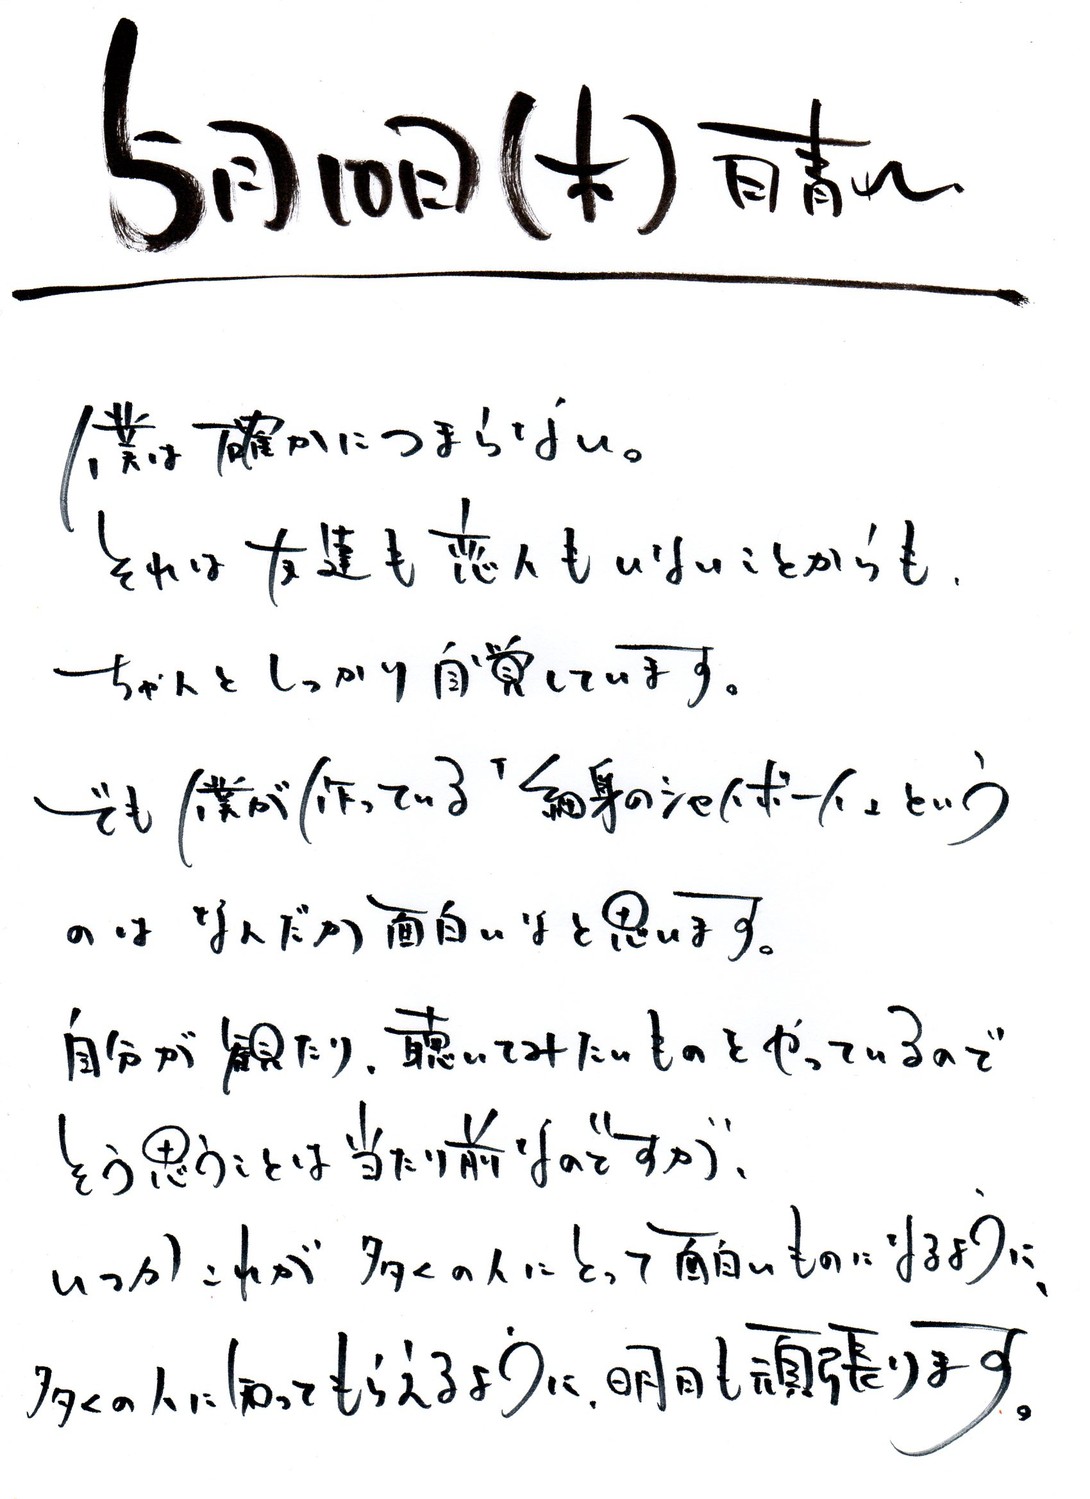 5月10日(木) 晴れ
僕は確かにつまらない。
それは友達も恋人もいないことからも、
ちゃんとしっかり自覚しています。
でも僕が作っている「細身のシャイボーイ」という
のはなんだか面白いなと思います。
自分が観たり、聴いてみたいものをやっているので
そう思うことは当たり前なのですが、
いつかこれが多くの人にとって面白いものになるように、
多くの人に知ってもらえるように、明日も頑張ります。